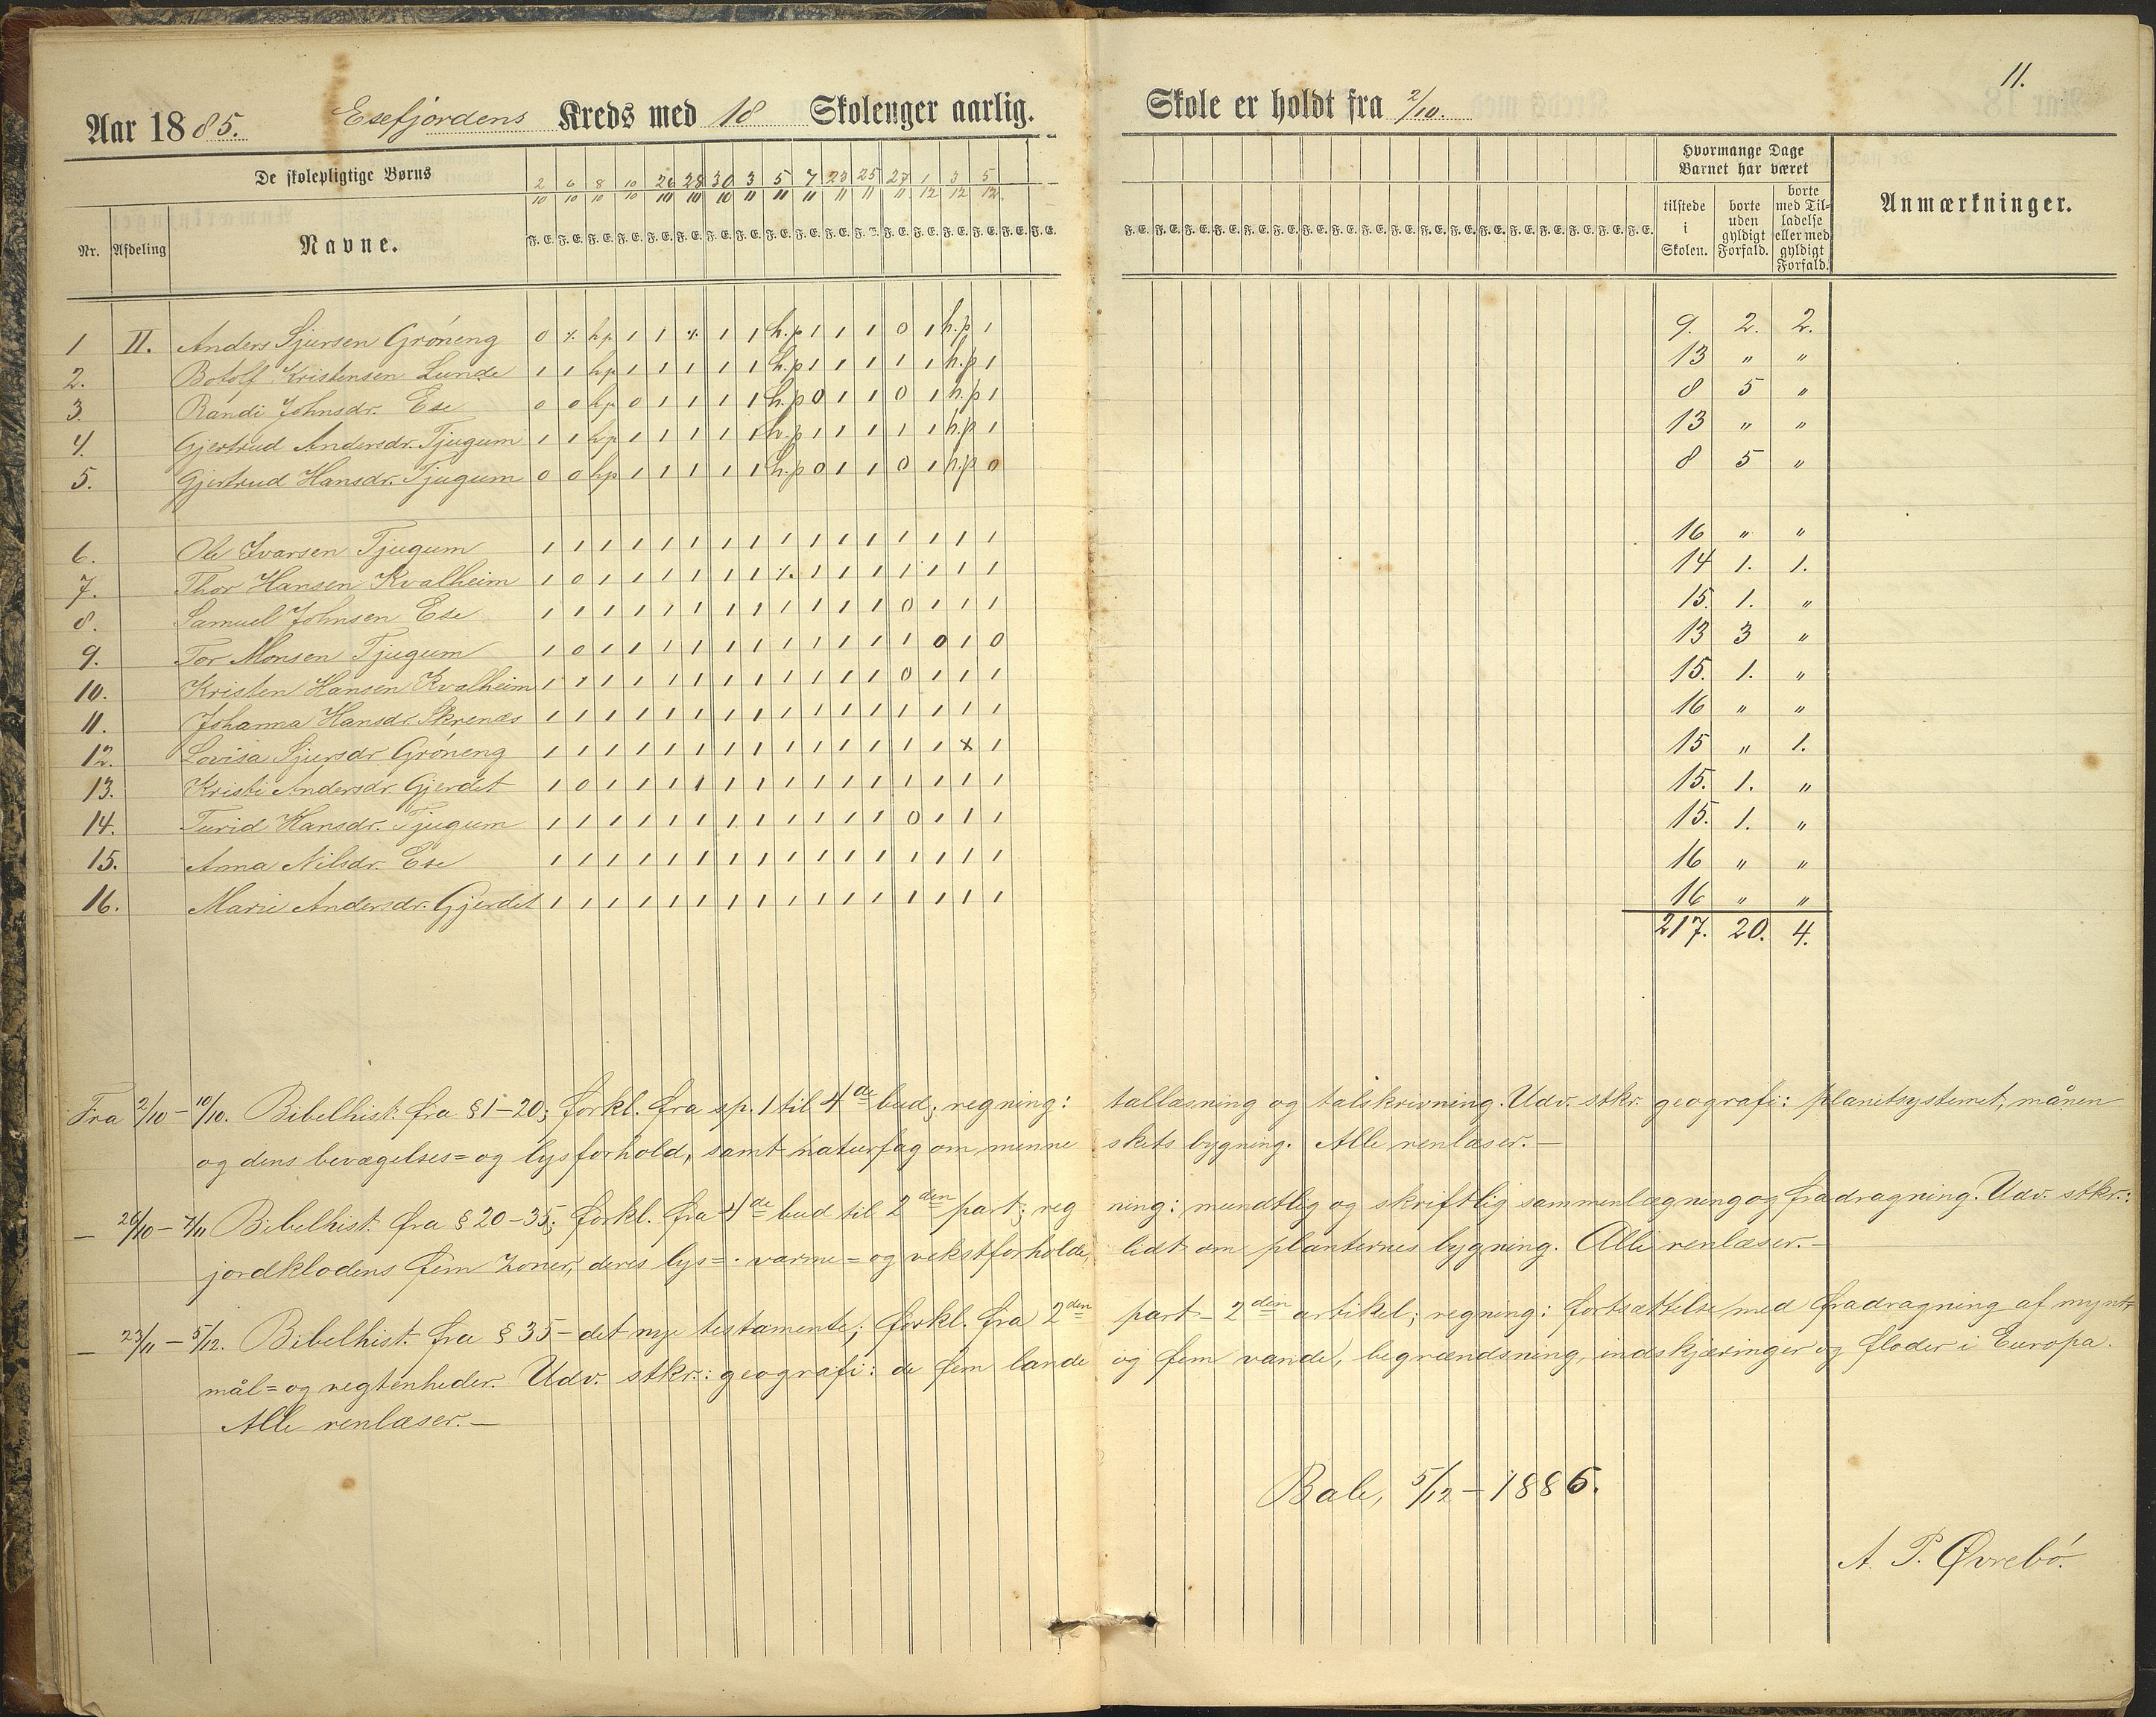 11.
Aar 1885. Esefjordens Kreds med 18 Skolenger aarlig. Skole er holdt fra 2/10.
De skolepligtige Børns
Nr. Afdeling Navne.
2/10 6/10 8/10 10/10 26/10 28/10 30/10 3/11 5/11 7/11 23/11 25/11 27/11 1/12 3/12 5/12.
F. E. F. E. F. E. F. E. F. E. F. E. F. E. F. E. F. E. F. E. F. E. F. E. F. E. F. E. F. E. F. E. F. E. F. E.
F. E. F. E. F. E. F. E. F. E. F. E. F. E. F. E. F. E. F. E. F. E. F. E. F. E. F. E. F. E. F. E. F. E. F. E.
Hvormange Dage Barnet har været
tilstede i Skolen. borte uden gyldigt Forfald. borte med Tilladelse eller med gyldigt Forfald.
Anmærkninger.
1 II. Anders Sjursen Gróneng 0 ⁒ hp 1 1 ⁒ 1 1 h.p 1 1 1 0 1 h.p 1 9. 2. 2.
2. Botolf Kristensen Lunde 1 1 hp 1 1 1 1 1 h.p 1 1 1 1 1 h.p 1 13 " "
3. Randi Johnsdr. Ese 0 0 hp 0 1 1 1 1 h.p 0 1 1 0 1 h.p 1 8 5 "
4. Gjertrud Andersdr. Tjugum 1 1 hp 1 1 1 1 1 h.p 1 1 1 1 1 h.p 1 13 " "
5. Gjertrud Hansdr. Tjugum 0 0 hp 1 1 1 1 1 h.p 0 1 1 0 1 h.p 0 8 5 "
6. Ole Ivarsen Tjugum 1 1 1 1 1 1 1 1 1 1 1 1 1 1 1 1 16 " "
7. Thor Hansen Kvalheim 1 0 1 1 1 1 1 1 ⁒ 1 1 1 1 1 1 1 14 1. 1.
8. Samuel Johnsen Ese 1 1 1 1 1 1 1 1 1 1 1 1 0 1 1 1 15. 1. "
9. Tor Monsen Tjugum 1 0 1 1 1 1 1 1 1 1 1 1 1 0 1 0 13 3 "
10. Kristen Hansen Kvalheim 1 1 1 1 1 1 1 1 1 1 1 1 0 1 1 1 15. 1. "
11. Johanna Hansdr. Skrenes 1 1 1 1 1 1 1 1 1 1 1 1 1 1 1 1 16 " "
12. Lovisa Sjursdr Gróneng 1 1 1 1 1 1 1 1 1 1 1 1 1 1 x 1 15 " 1.
13. Kristi Andersdr Gjerdet 1 0 1 1 1 1 1 1 1 1 1 1 1 1 1 1 15. 1. "
14. Turid Hansdr. Tjugum 1 1 1 1 1 1 1 1 1 1 1 1 0 1 1 1 15. 1. "
15. Anna Nilsdr. Ese 1 1 1 1 1 1 1 1 1 1 1 1 1 1 1 1 16 " "
16. Marie Andersdr. Gjerdet 1 1 1 1 1 1 1 1 1 1 1 1 1 1 1 1 16 " "
217. 20. 4.
Fra 2/10 – 10/10. Bibelhist. fra § 1–20; forkl. fra sp. 1 til 4de bud; regning: tallæsning og talskrivning. Udv. stkr. geografi: planetsystemet, månen
og dens bevægelses= og lysforhold, samt naturfag om menne skets bygning. Alle renlæser. –
– 26/10 – 7/11 Bibelhist. fra § 20–35; forkl. fra 4de bud til 2den part; reg ning: mundtlig og skriftlig sammenlægning og fradragning. Udv. stkr.:
jordklodens fem zoner, deres lys=. varme= og vekstforholde, lidt om planternes bygning. Alle renlæser. –
– 23/11 – 5/12. Bibelhist. fra § 35 – det nye testamente; forkl. fra 2den part – 2den artikel; regning: fortsættelse med fradragning af mynt,
mål= og vegtenheder. Udv. stkr.: geografi: de fem lande og fem vande, begrændsning, indskjæringer og floder i Europa.
Alle renlæser. –
Bale, 5/12 – 1886.
A. P. Øvrebó.